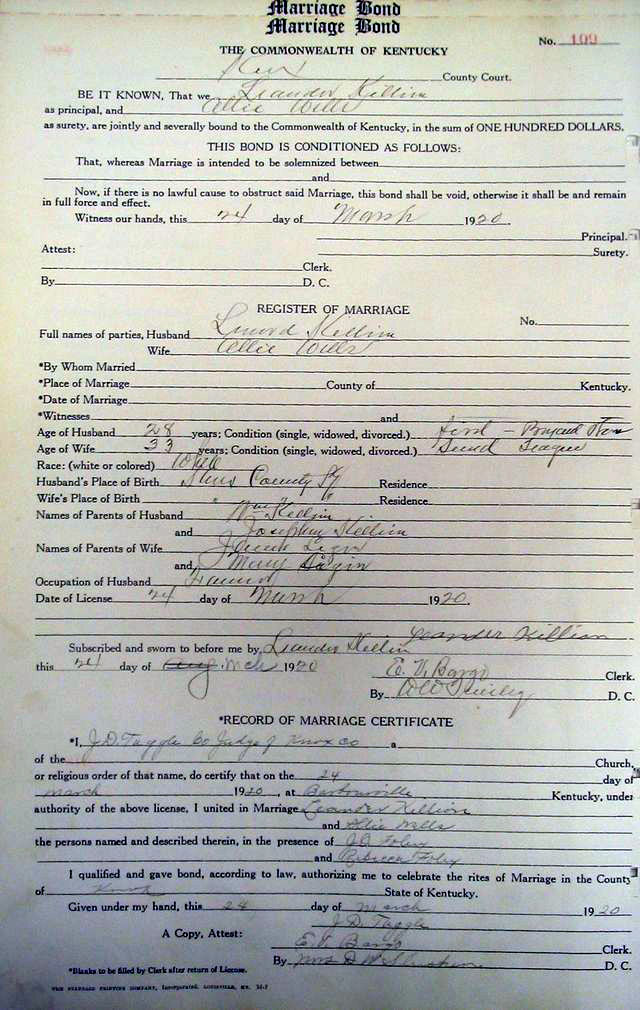 Marriage Bond
Marriage Bond
No. 199
THE COMMONWEALTH OF KENTUCKY
County Court.
BE IT KNOWN, That we Leander Killion
as principal, and Allie Wills
as surety, are jointly and severally bound to the Commonwealth of Kentucky, in the sum of ONE HUNDRED DOLLARS.
THIS BOND IS CONDITIONED AS FOLLOWS:
That, whereas Marriage is intended to be solemnized between
and
Now, if there is no lawful cause to obstruct said Marriage, this bond shall be void, otherwise it shall be and remain
in full force and effect.
Witness our hands, this 24 day of March 1920.
Principal.
Attest: Surety.
Clerk.
By D. C.
REGISTER OF MARRIAGE
No.
Full names of parties, Husband Killion
Wife Allie Wills
*By Whom Married
*Place of Marriage County of Kentucky.
*Date of Marriage
*Witnesses and
Age of Husband 28 years; Condition (single, widowed, divorced.)
Age of Wife 33 years; Condition (single, widowed, divorced.)
Race: (white or colored) White
Husband's Place of Birth County Ky Residence
Wife's Place of Birth " " Residence
Names of Parents of Husband Wm Killion
and Killion
Names of Parents of Wife
and Mary
Occupation of Husband Farmer
Date of License 24 day of March 1920.
Leander Killion
Subscribed and sworn to before me by Leander Killion
this 24 day of Mch 1920 E. V. Bargo Clerk.
By D. C.
*RECORD OF MARRIAGE CERTIFICATE
*I, J. D. Tuggle Co Judge of Knox Co a
of the Church,
or religious order of that name, do certify that on the 24 day of
March 1920, at Barbourville Kentucky, under
authority of the above license, I united in Marriage Leander Killion
and Allie Wells
the persons named and described therein, in the presence of J. A. Foley
and Rebecca Foley
I qualified and gave bond, according to law, authorizing me to celebrate the rites of Marriage in the County
of Knox State of Kentucky.
Given under my hand, this 24 day of March 1920
J. D. Tuggle
A Copy, Attest: E. V. Bargo Clerk.
By Mrs D. D. C.
*Blanks to be filled by Clerk after return of License.
THE STANDARD PRINTING COMPANY, Incorporated, LOUISVILLE, KY.